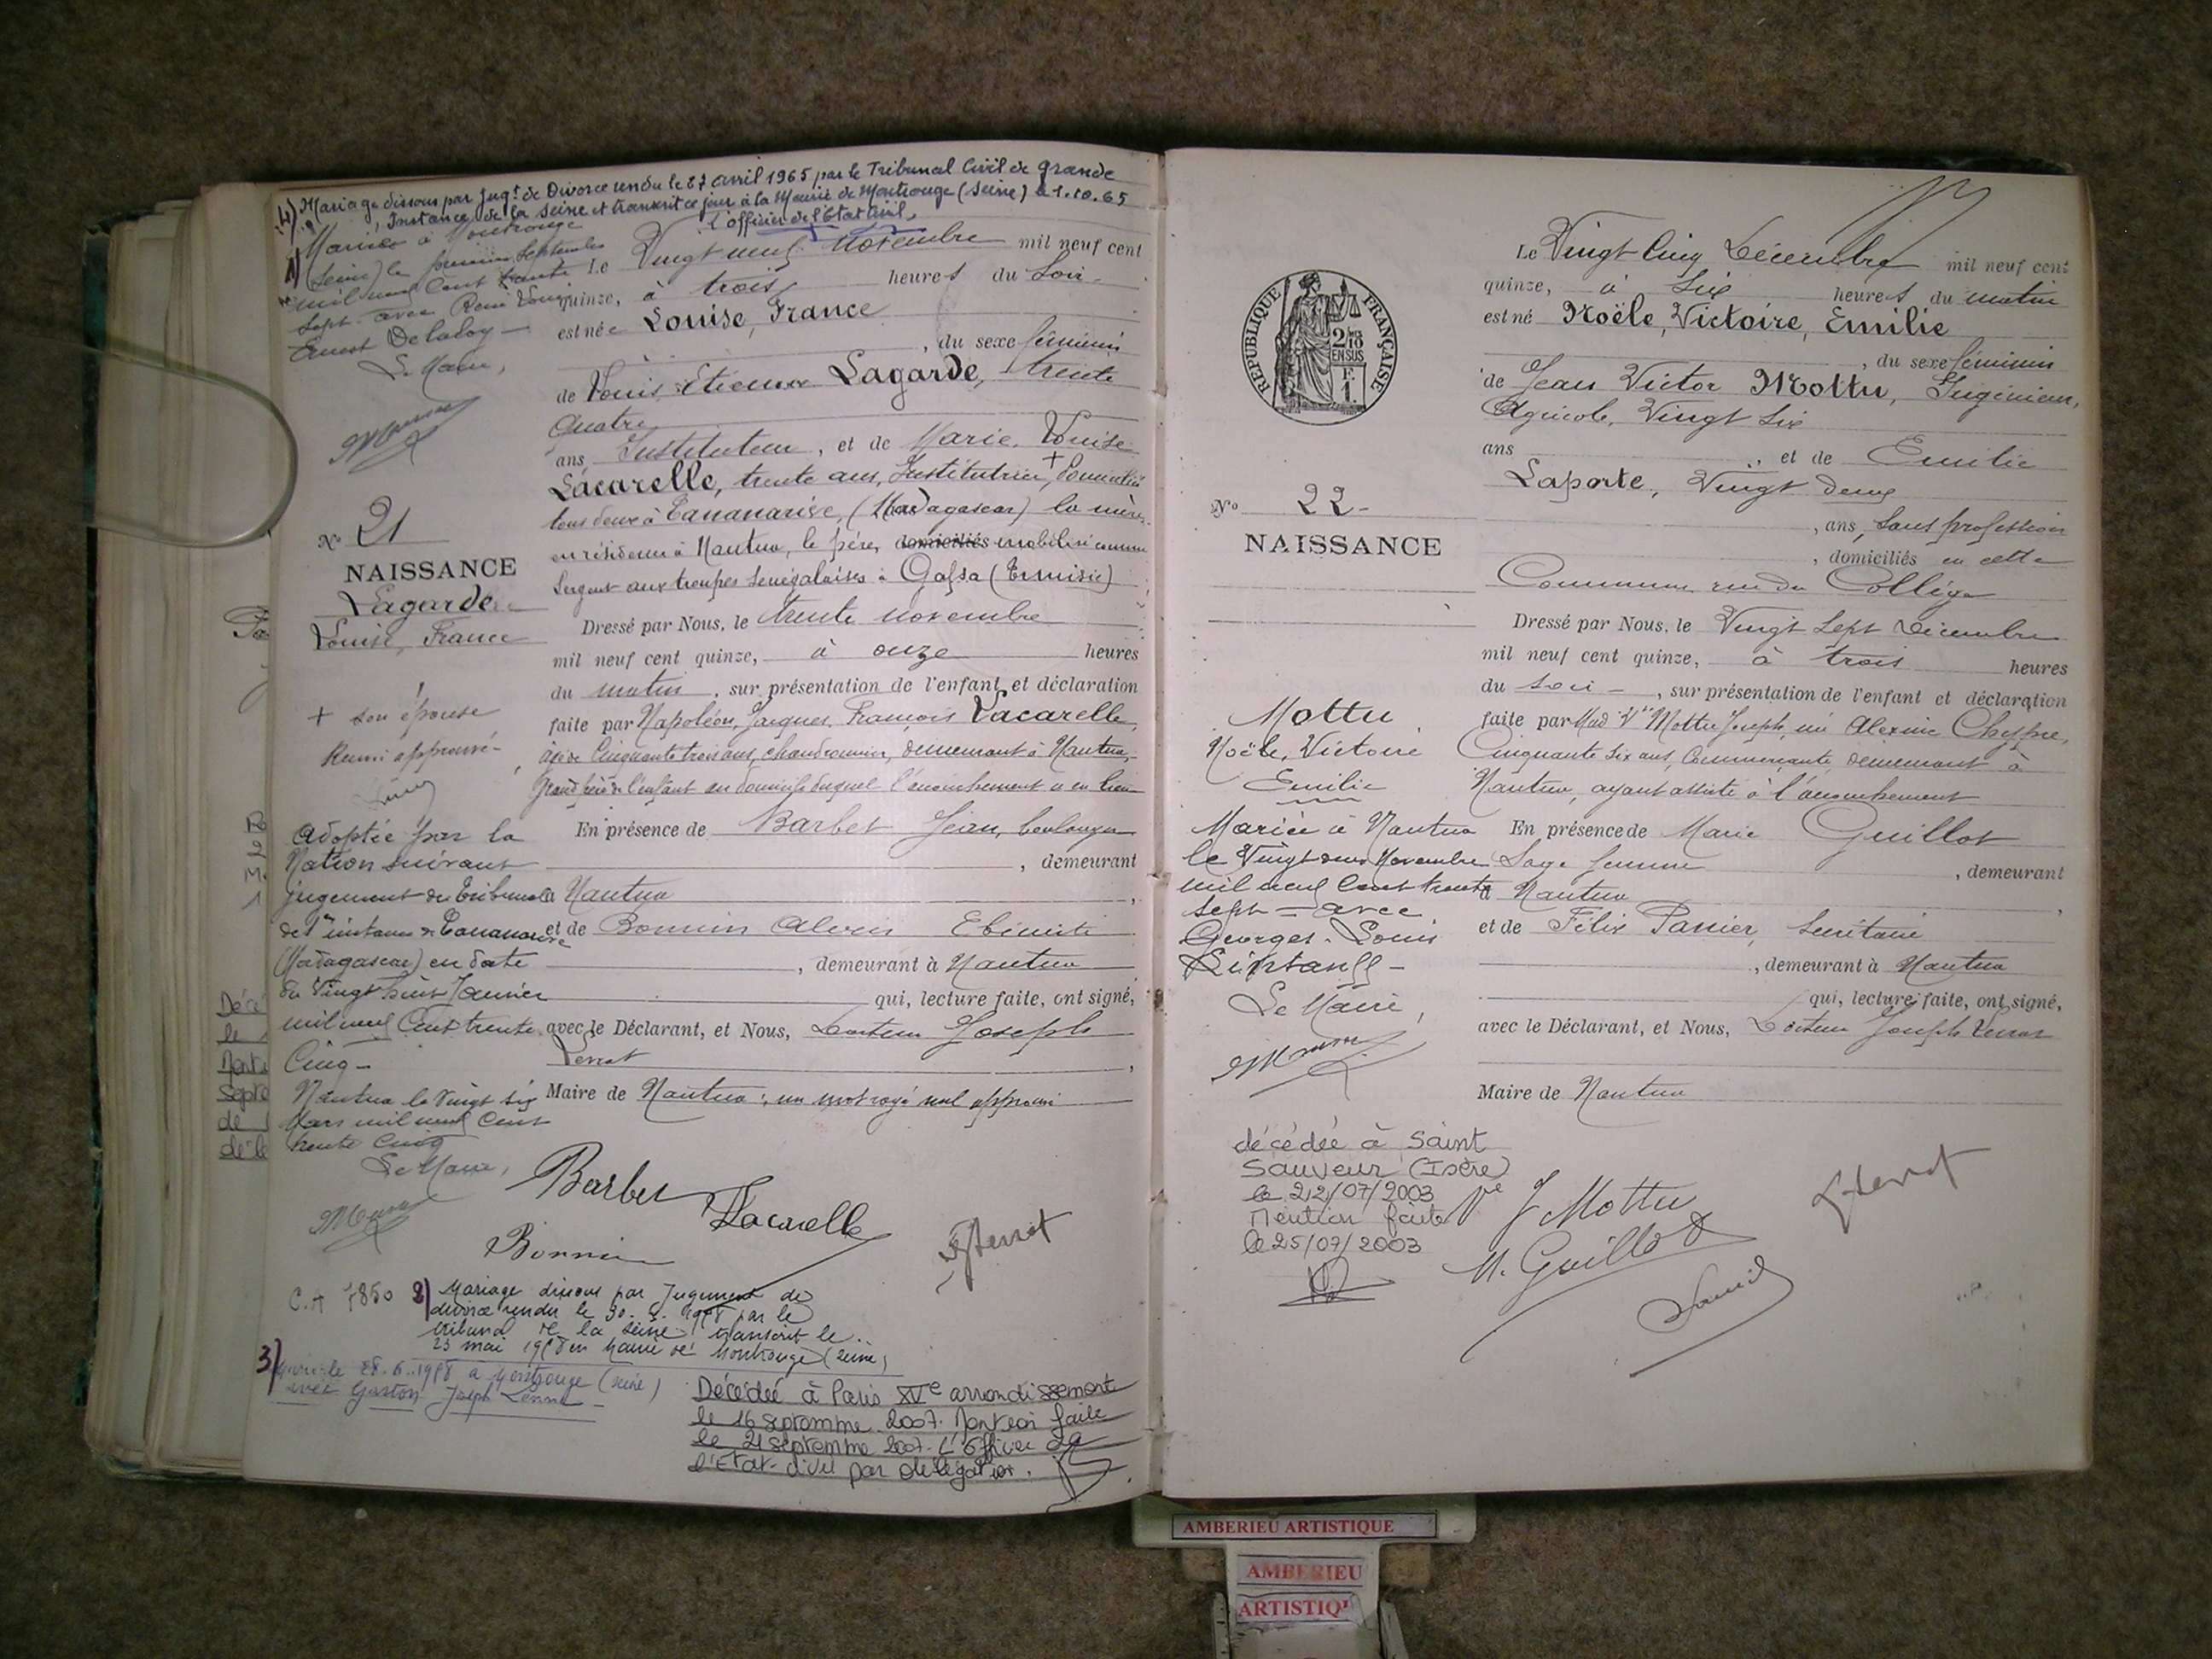 4) Mariage dissous par Jugt de Divorce rendu le 27 avril 1965 par le Tribunal Civil de Grande
Instance de la Seine et transcrit ce jour à la Mairie de Montrouge (Seine) le 1.10.65
l'officier de l'Etat Civil,
1) Mariée à Montrouge
(Seine) le premier Septembre
mil neuf Cent trente
Sept avec René Louis
Ernest Delaloy
Le Maire,
No 21
NAISSANCE
Lagarde
Louise, France
+ son épouse
Renvoi approuvé
Adoptée par la
Nation suivant
jugement du Tribunal
de 1re instance de Tananarive
(Madagascar) en date
du Vingt huit Janvier
mil neuf Cent trente
Cinq
Nantua le Vingt six
Mars mil neuf Cent
trente Cinq
Le Maire,
Le Vingt neuf Novembre mil neuf cent
quinze, à trois heures du Soir
est née Louise, France
, du sexe féminin
de Louis Etienne Lagarde, trente
Quatre
ans Instituteur, et de Marie Louise
Lacarelle, trente ans, Institutrice, + domiciliés
tous deux à Tananarive, (Madagascar) la mère
en résidence à Nantua, le père, domiciliés mobilisé comme
Sergent aux troupes Sénégalaises à Gafsa (Tunisie)
Dressé par Nous, le trente novembre
mil neuf cent quinze, à onze heures
du matin, sur présentation de l'enfant et déclaration
faite par Napoléon, Jacques, François Lacarelle,
âgé de Cinquante trois ans, chaudronnier, demeurant à Nantua,
Grand père de l'enfant au domicile duquel l'accouchement a eu lieu
En présence de Barbet Jean, boulanger
, demeurant
à Nantua
et de Bonnin Alexis Ebéniste
, demeurant à Nantua
qui, lecture faite, ont signé,
avec le Déclarant, et Nous, Docteur Joseph
Verrat
Maire de Nantua, un mot rayé nul approuvé
Barbet
Lacarelle
Bonnin
C.A 7850
2) Mariage dissous par Jugement de
divorce rendu le 30. par le
tribunal de la Seine transcrit le
23 mai en Mairie de Montrouge (Seine)
3) Mariée le 28.6. à Montrouge (Seine)
avec Gaston Joseph
Décédée à Paris XVe arrondissement
le 16 septembre 2007. Mention faite
le 21 septembre 2007. L'Officier de
l'Etat-civil par délégation.
REPUBLIQUE FRANÇAISE
2/10
EN SUS
No 22
NAISSANCE
Mottu
Noële, Victoire
Emilie
Mariée à Nantua
le Vingt deux Novembre
mil neuf Cent trente
Sept avec
Georges Louis
Le Maire,
décédée à Saint
Sauveur (Isère)
le 22/07/2003
Mention faite
le 25/07/2003
Le Vingt Cinq Décembre mil neuf cent
quinze, à Six heures du matin
est né Noële, Victoire, Emilie
, du sexe féminin
de Jean Victor Mottu, Ingénieur,
Agricole, Vingt Six
ans , et de Emilie
Laporte, Vingt deux
, ans, Sans profession
, domiciliés en cette
Commune rue du Collège
Dressé par Nous, le Vingt Sept Décembre
mil neuf cent quinze, à trois heures
du soir, sur présentation de l'enfant et déclaration
faite par Mad Vve Mottu Joseph, née Alexine
Cinquante Six ans, Commerçante demeurant à
Nantua, ayant assisté à l'accouchement
En présence de Marie Guillot
Sage femme , demeurant
à Nantua
et de Félix Panier, Secrétaire
, demeurant à Nantua
qui, lecture faite, ont signé,
avec le Déclarant, et Nous, Docteur Joseph Verrat
Maire de Nantua
Ve J Mottu
M. Guillot
AMBERIEU ARTISTIQUE
AMBERIEU
ARTISTIQ